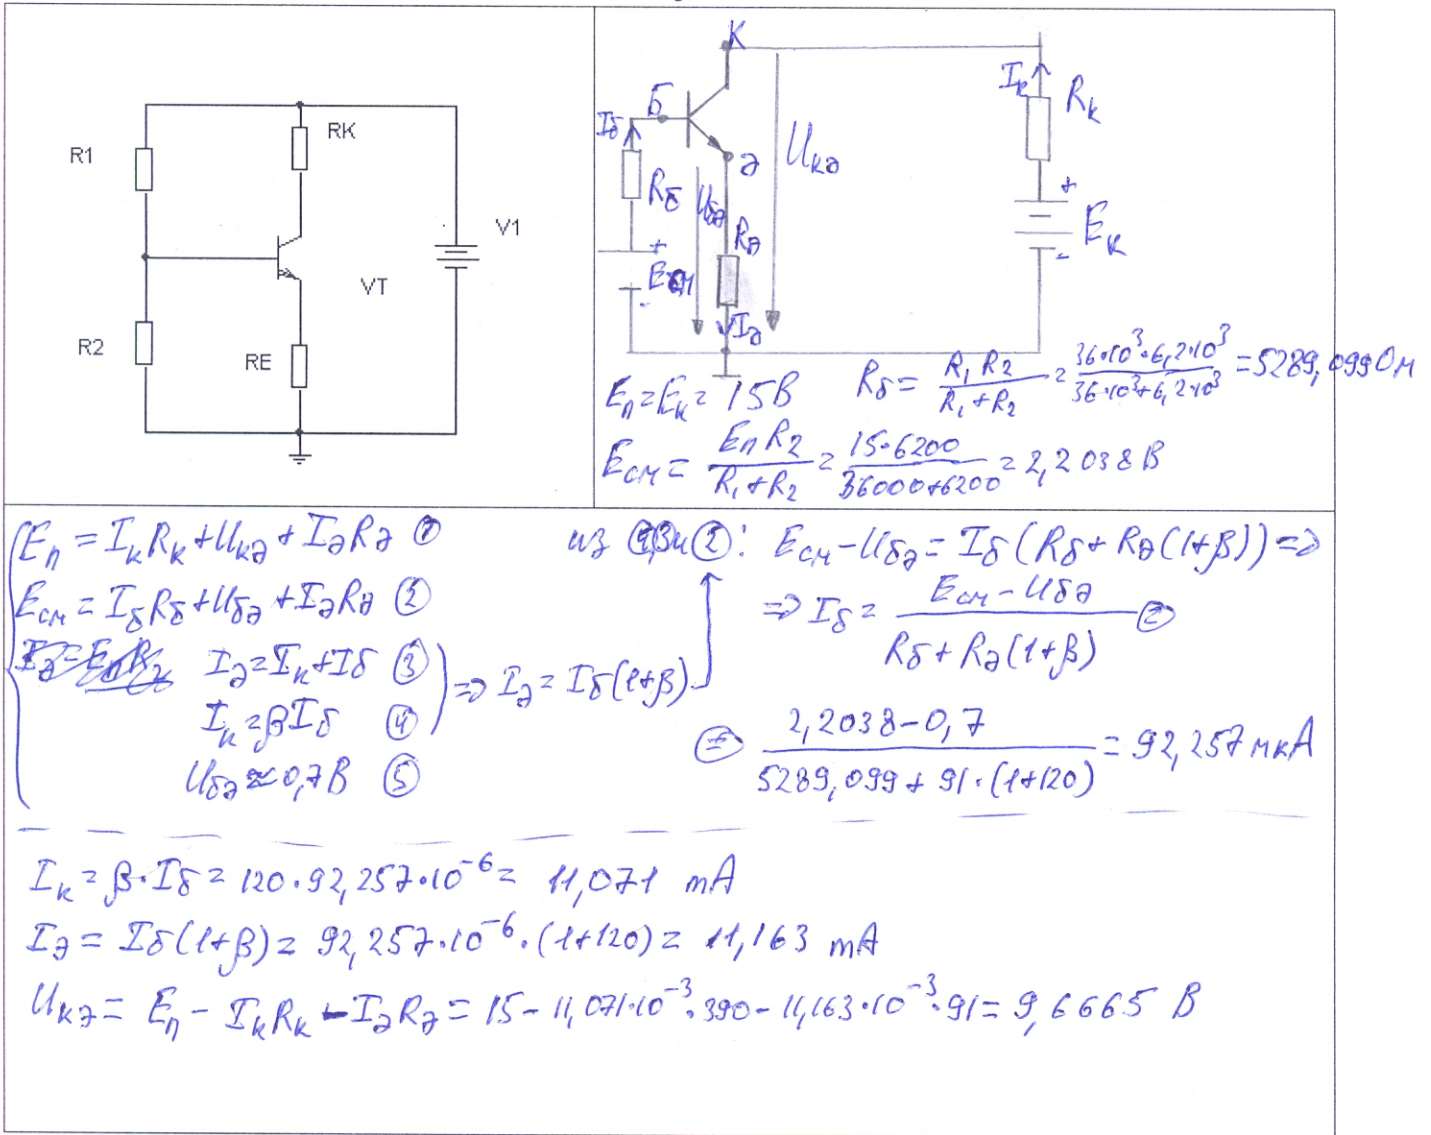 R1
RK
V1
VT
R2
RE
К
Iк
Rк
Б
Iб
Э
Uкэ
Rб
Uбэ
Rэ
+
Eсм
-
Iэ
+
Eк
-
Eп = Eк = 15В
Rб = R₁ R₂ / (R₁ + R₂) = 36·10³·6,2·10³ / (36·10³+6,2·10³) = 5289,099 Ом
Eсм = Eп R₂ / (R₁+R₂) = 15·6200 / (36000+6200) = 2,2038 В
Eп = IкRк + Uкэ + IэRэ ①
Eсм = IбRб + Uбэ + IэRэ ②
Iэ = Iк + Iб ③
Iк = βIб ④
=> Iэ = Iб(1+β)
Uбэ ≈ 0,7В ⑤
из ② : Eсм − Uбэ = Iб (Rб + Rэ(1+β)) =>
=> Iб = (Eсм − Uбэ) / (Rб + Rэ(1+β)) =
= (2,2038 − 0,7) / (5289,099 + 91·(1+120)) = 92,257 мкА
Iк = β·Iб = 120·92,257·10⁻⁶ = 11,071 mA
Iэ = Iб(1+β) = 92,257·10⁻⁶·(1+120) = 11,163 mA
Uкэ = Eп − IкRк − IэRэ = 15 − 11,071·10⁻³·390 − 11,163·10⁻³·91 = 9,6665 В